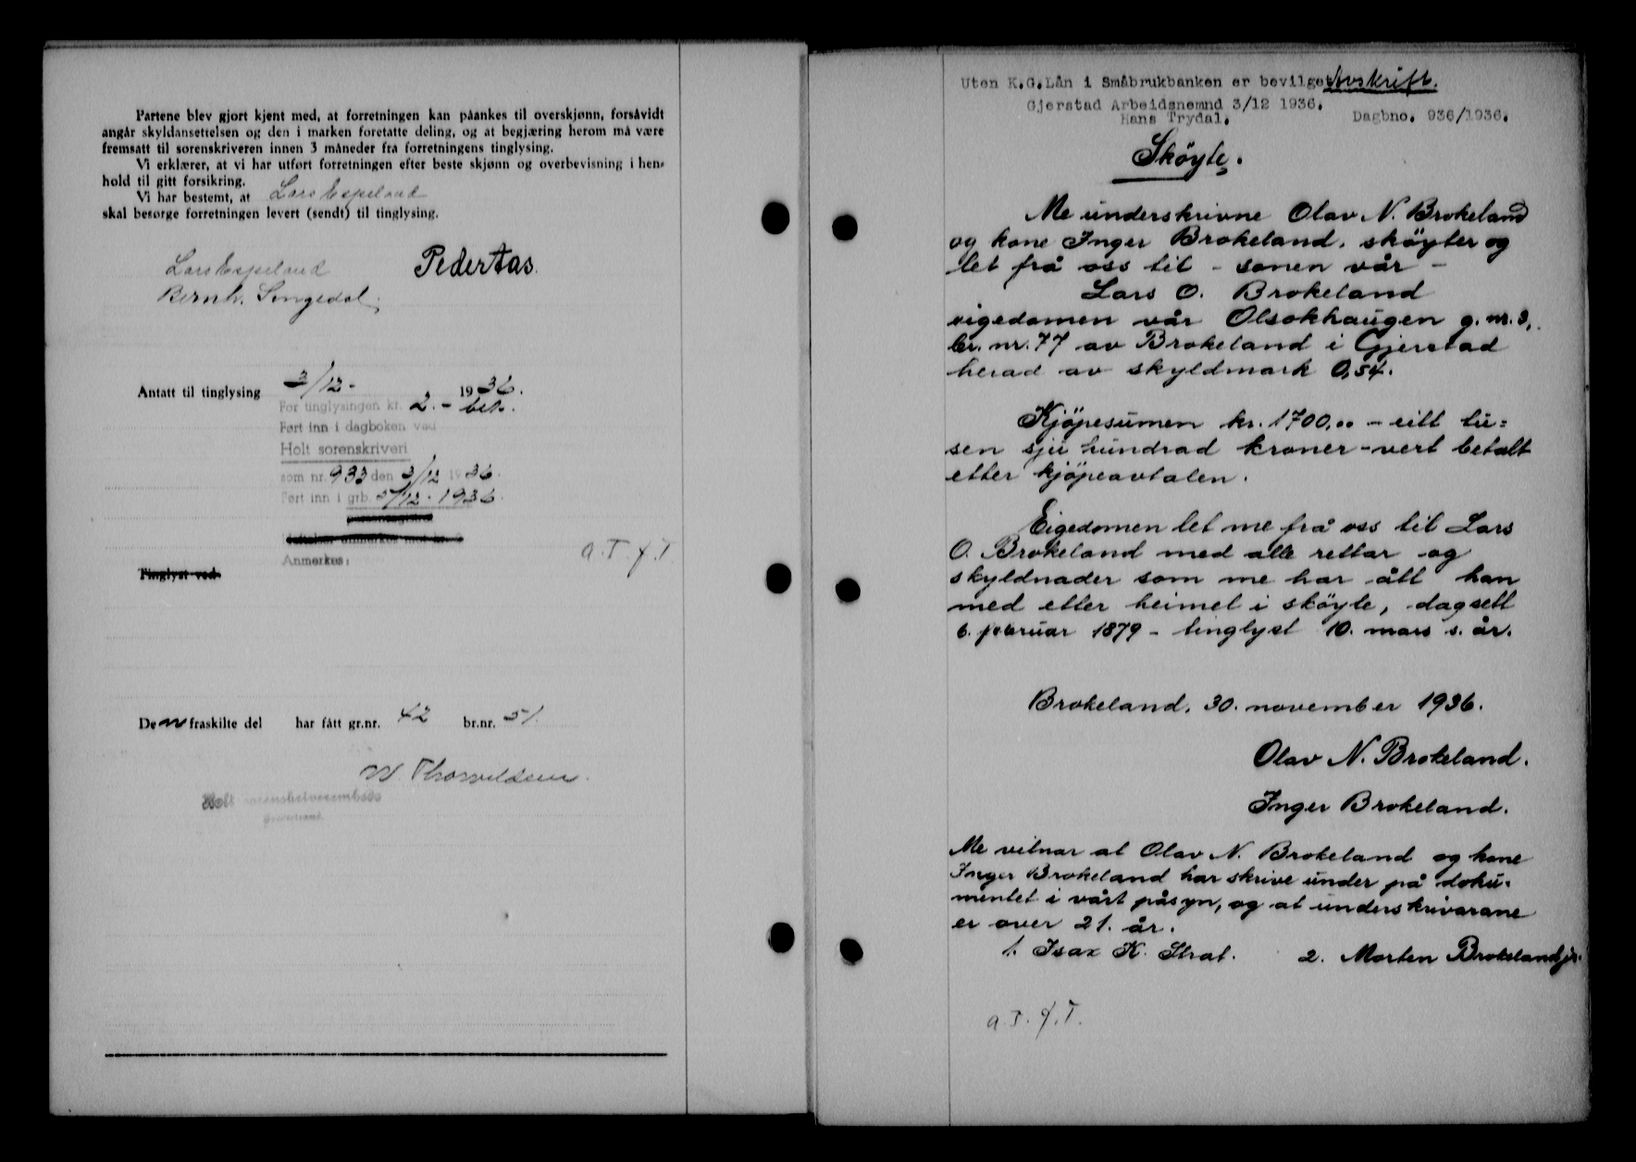 Partene blev gjort kjent med, at forretningen kan påankes til overskjønn, forsåvidt
angår skyldansettelsen og den i marken foretatte deling, og at begjæring herom må være
fremsatt til sorenskriveren innen 3 måneder fra forretningens tinglysing.
Vi erklærer, at vi har utført forretningen efter beste skjønn og overbevisning i hen-
hold til gitt forsikring.
Vi har bestemt, at Lars Espeland
skal besørge forretningen levert (sendt) til tinglysing.
Lars Espeland Peder Aas.
Bernh. Songedal.
Antatt til tinglysing 3/12- 1936.
For tinglysingen kr. 2.- bet.
Ført inn i dagboken ved
Holt sorenskriveri
som nr. 933 den 3/12 1936.
Ført inn i grb. 1936.
Anmerkes:
Tinglyst ved
a.T.f.T
Den fraskilte del har fått gr.nr. 42 br.nr. 51
W. Thorvaldsen.
Holt sorenskriverembede
Uten K.G.Lån i Småbrukbanken er bevilget Avskrift.
Gjerstad Arbeidsnemnd 3/12 1936.
Hans Trydal. Dagbno. 936/1936.
Sköyte.
Me underskrivne Olav N. Brokeland
og kone Inger Brokeland, sköyter og
let frå oss til - sonen vår -
Lars O. Brokeland
eigedomen vår Olsokhaugen g. nr. 3,
br. nr. 77 av Brokeland i Gjerstad
herad av skyldmark 0,54.
Kjöpesumen kr. 1700,00 - eitt tu=
sen sju hundrad kroner - vert betalt
etter kjöpeavtalen.
Eigedomen let me frå oss til Lars
O. Brokeland med alle rettar og
skyldnader som me har ått han
med etter heimel i sköyte, dagsett
6. februar 1879 - tinglyst 10. mars s. år.
Brokeland, 30. november 1936.
Olav N. Brokeland.
Inger Brokeland.
Me vitnar at Olav N. Brokeland og kone
Inger Brokeland har skrive under på doku-
mentet i vårt påsyn, og at underskrivarane
er over 21. år.
1. Isax K. Strat. 2. Morten Brokeland jr.
a.T.f.T.